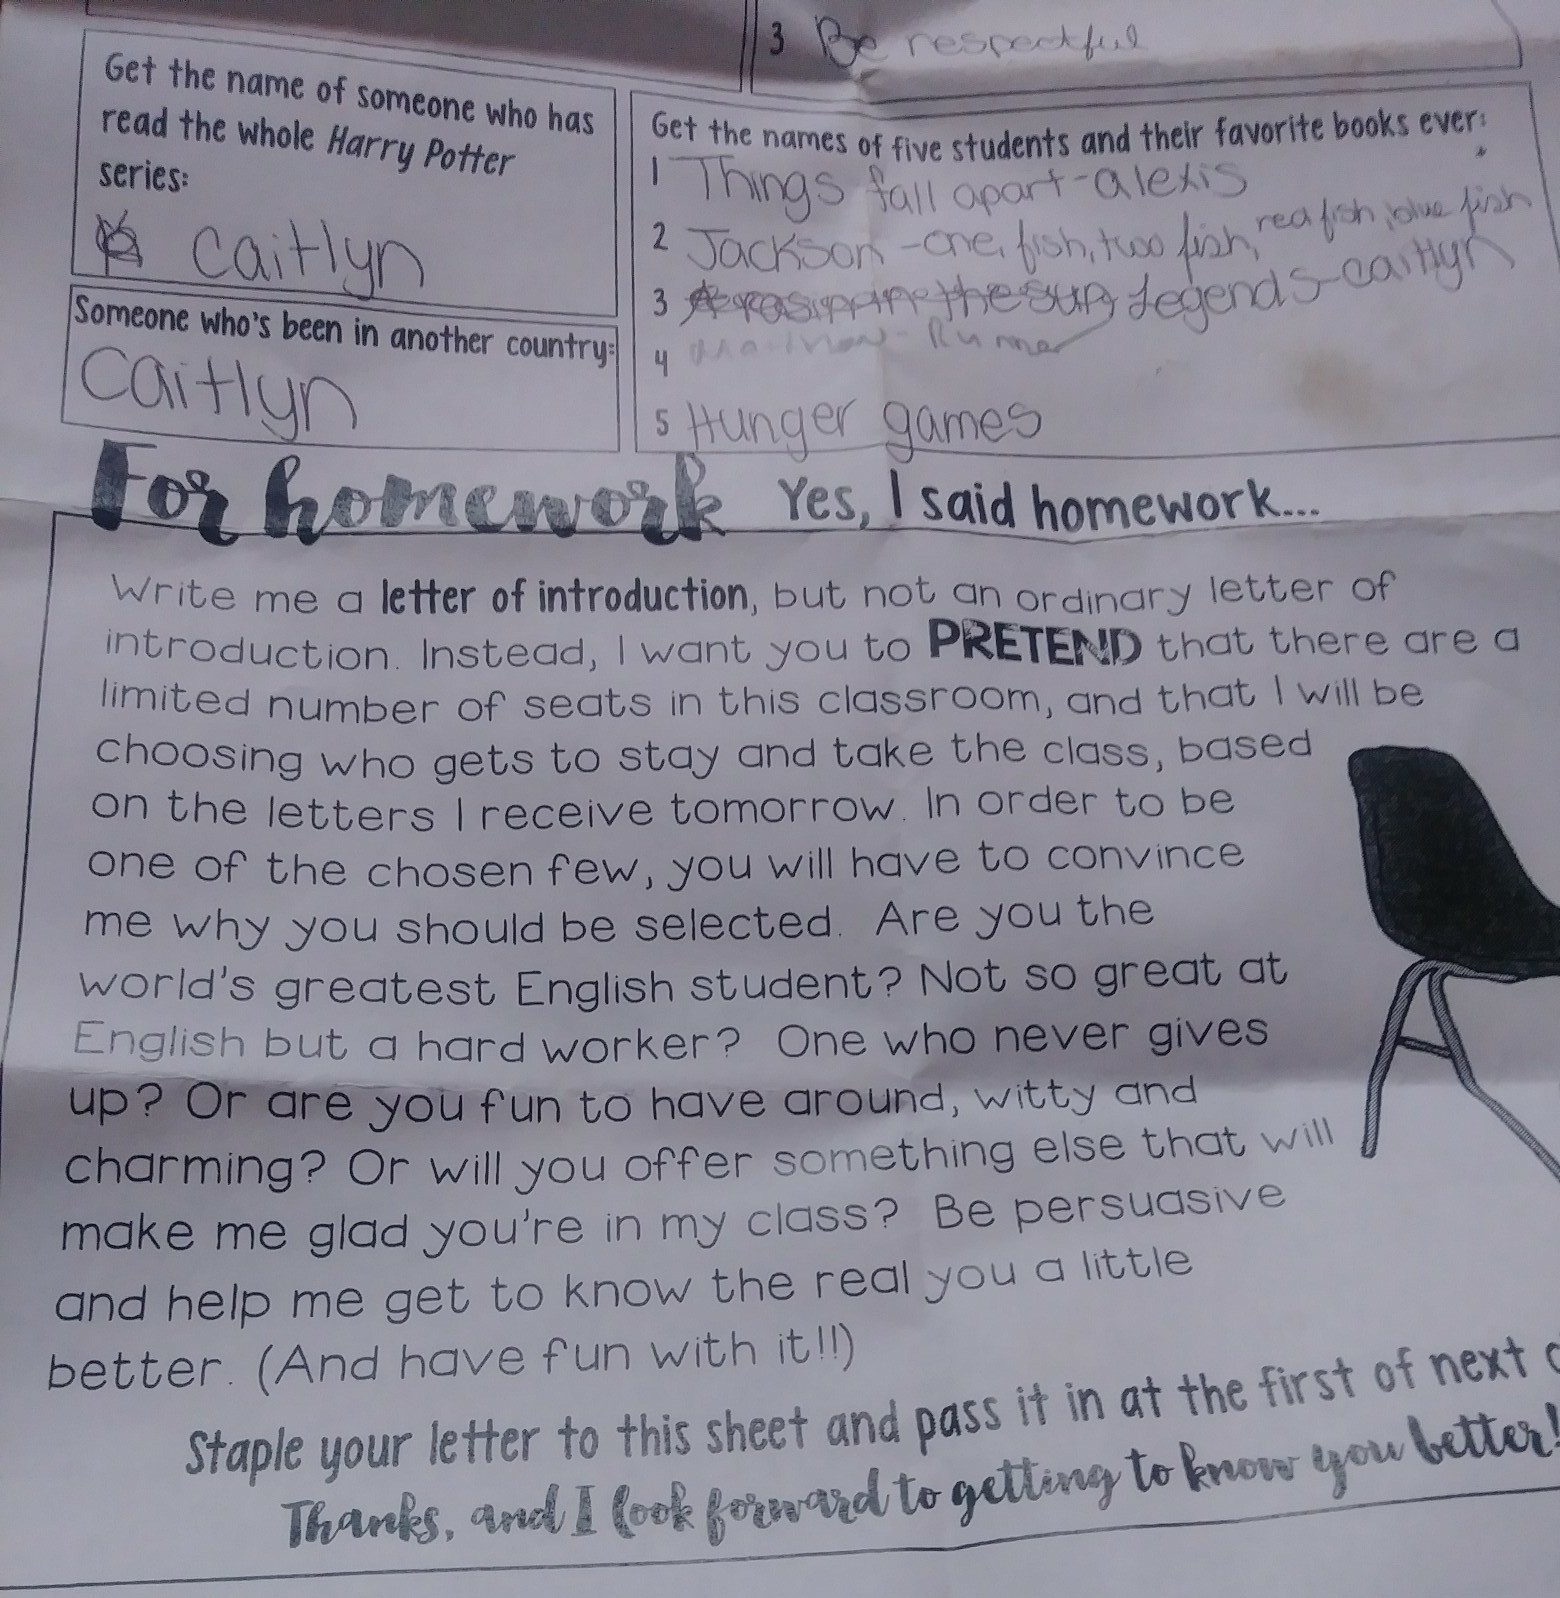 3 Be respectful
Get the name of someone who has
read the whole Harry Potter
series:
Caitlyn
Someone who's been in another country:
Caitlyn
Get the names of five students and their favorite books ever:
1 Things fall apart-alexis
2 Jackson-one, fish, two fish, red fish, blue fish
3 Legends-caitlyn
4 Runner
5 Hunger games
For homework Yes, I said homework...
Write me a letter of introduction, but not an ordinary letter of
introduction. Instead, I want you to PRETEND that there are a
limited number of seats in this classroom, and that I will be
choosing who gets to stay and take the class, based
on the letters I receive tomorrow. In order to be
one of the chosen few, you will have to convince
me why you should be selected. Are you the
world's greatest English student? Not so great at
English but a hard worker? One who never gives
up? Or are you fun to have around, witty and
charming? Or will you offer something else that will
make me glad you're in my class? Be persuasive
and help me get to know the real you a little
better. (And have fun with it!!)
Staple your letter to this sheet and pass it in at the first of next
Thanks, and I look forward to getting to know you better!